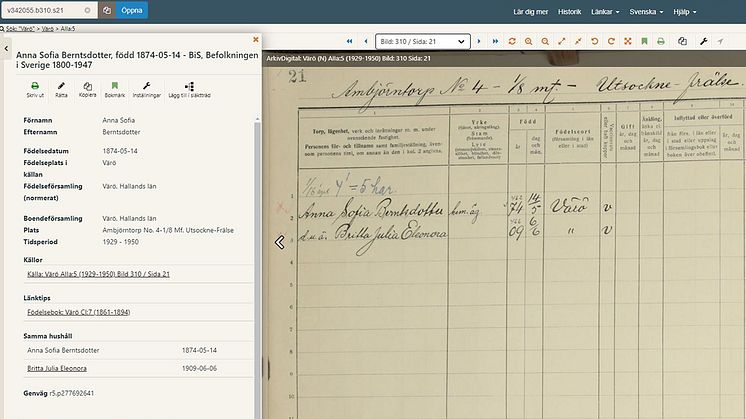 v342055.b310.s21
Öppna
Lär dig mer Historik Länkar Svenska Hjälp
Sök: "Värö" > Värö > AIIa:5
Bild: 310 / Sida: 21
Anna Sofia Berntsdotter, född 1874-05-14 - BiS, Befolkningen
i Sverige 1800-1947
Skriv ut Rätta Kopiera Bokmärk Inställningar Lägg till i släktträd
Förnamn Anna Sofia
Efternamn Berntsdotter
Födelsedatum 1874-05-14
Födelseplats i Värö
källan
Födelseförsamling Värö, Hallands län
(normerat)
Boendeförsamling Värö, Hallands län
Plats Ambjörntorp No. 4-1/8 Mf. Utsockne-Frälse
Tidsperiod 1929 - 1950
Källor
Källa: Värö AIIa:5 (1929-1950) Bild 310 / Sida 21
Länktips
Födelsebok: Värö CI:7 (1861-1894)
Samma hushåll
Anna Sofia Berntsdotter 1874-05-14
Britta Julia Eleonora 1909-06-06
Genväg r5.p277692641
ArkivDigital: Värö (N) AIIa:5 (1929-1950) Bild: 310 Sida: 21
21
Ambjörntorp No 4 - 1/8 mf. - Utsockne-frälse.
Torp, lägenhet, verk och inrättningar m. m. under
ovanstående fastighet.
Personens för- och tillnamn samt familjeställning, även-
som personens titel, om annan än den i kol. 2 angivna.
Yrke
Stam
Lyte
Född
år
dag och mån.
Födelseort
(församling i länet eller i stad)
Gift
år, dag och månad
Inflyttad eller överförd
från förs. i län eller i stad eller uppslag i församlingsbok eller boken över obefintl.
år, dag och månad
4' = 5 har.
Anna Sofia Berntsdotter hem.äg. 74 14/5 Värö v
d.u.ä. Britta Julia Eleonora 09 6/6 " v